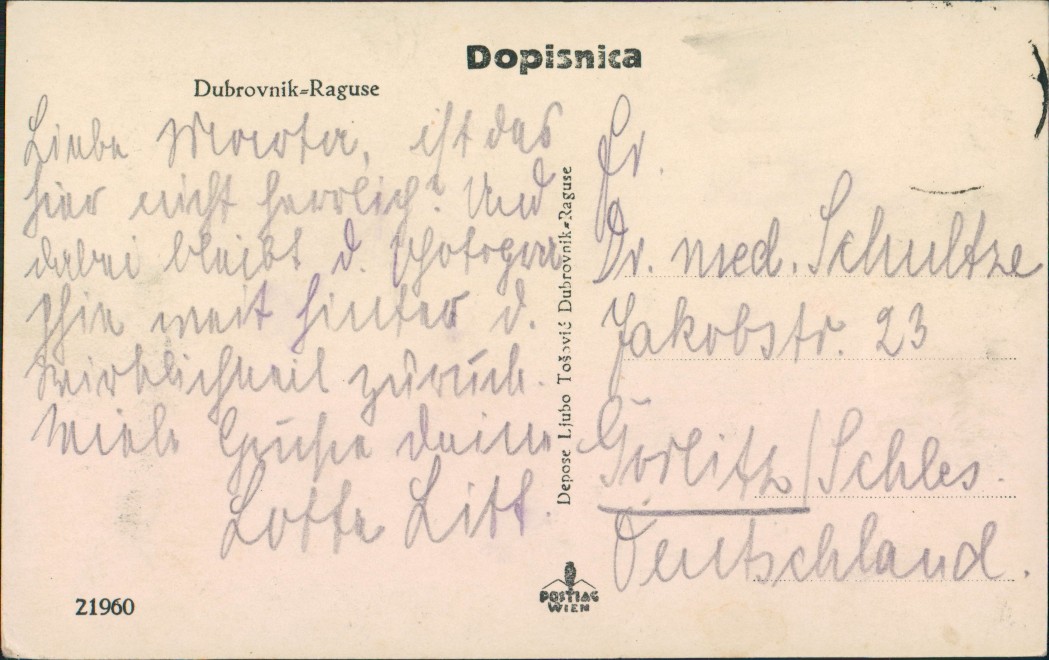 Dopisnica
Dubrovnik=Raguse
Liebe Marta, ist das
hier nicht herrlich? Und
dabei bleibt d. Photogra
phie weit hinter d.
Wirklichkeit zurück.
Viele Grüße deine
Lotte Litt.
Depose Ljubo Tošović Dubrovnik=Raguse
Fr.
Dr. med. Schultze
Jakobstr. 23
Görlitz/Schles.
Deutschland.
POSTIAG
WIEN
21960